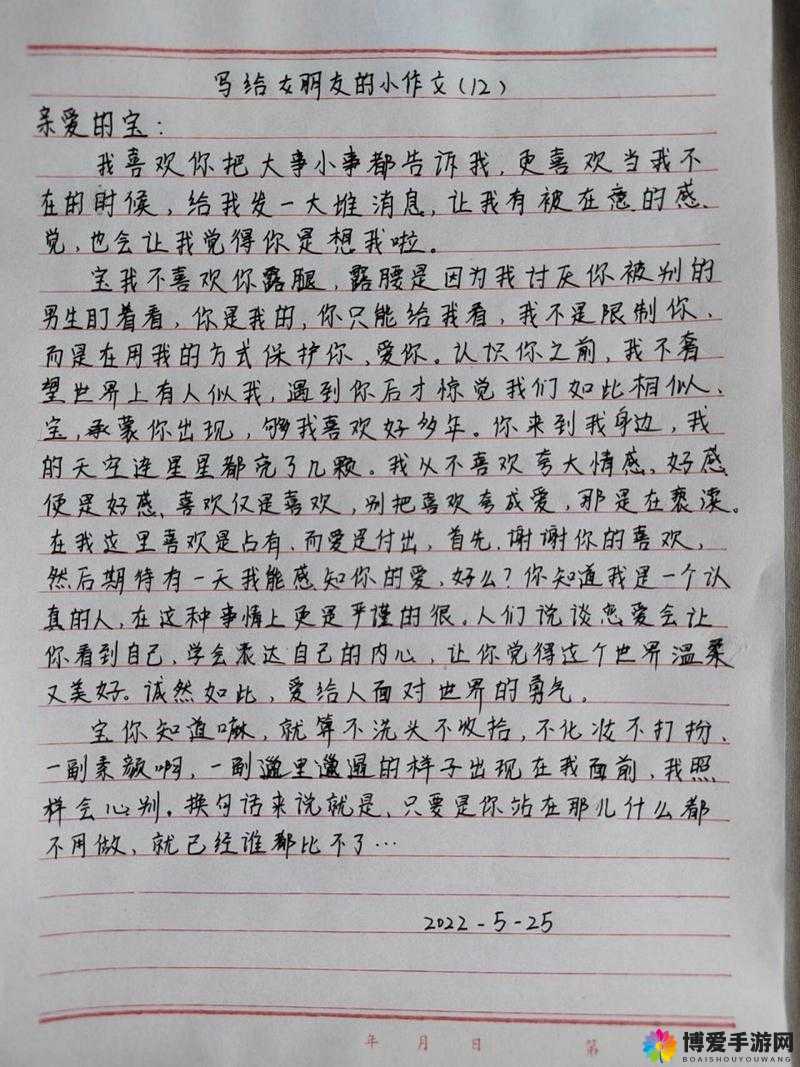 写给女朋友的小作文(12)
亲爱的宝:
我喜欢你把大事小事都告诉我,更喜欢当我不
在的时候,给我发一大堆消息,让我有被在意的感
觉,也会让我觉得你是想我啦。
宝我不喜欢你露腿,露腰是因为我讨厌你被别的
男生盯着看,你是我的,你只能给我看,我不是限制你、
而是在用我的方式保护你、爱你。认识你之前,我不奢
望世界上有人似我,遇到你后才惊觉我们如此相似、
宝,承蒙你出现,够我喜欢好多年。你来到我身边,我
的天空连星星都亮了几颗。我从不喜欢夸大情感、好感
便是好感、喜欢仅是喜欢,别把喜欢夸成爱,那是在亵渎。
在我这里喜欢是占有、而爱是付出,首先、谢谢你的喜欢,
然后期待有一天我能感知你的爱,好么?你知道我是一个认
真的人,在这种事情上更是严谨的很。人们说谈恋爱会让
你看到自己,学会表达自己的内心,让你觉得这个世界温柔
又美好。诚然如此,爱给人面对世界的勇气。
宝你知道嘛,就算不洗头不收拾,不化妆不打扮、
一副素颜啊,一副邋里邋遢的样子出现在我面前,我照
样会心别。换句话来说就是,只要是你站在那儿什么都
不用做、就已经谁都比不了…
2022-5-25
年 月 日 第
博爱手游网
BOAISHOUYOUWANG